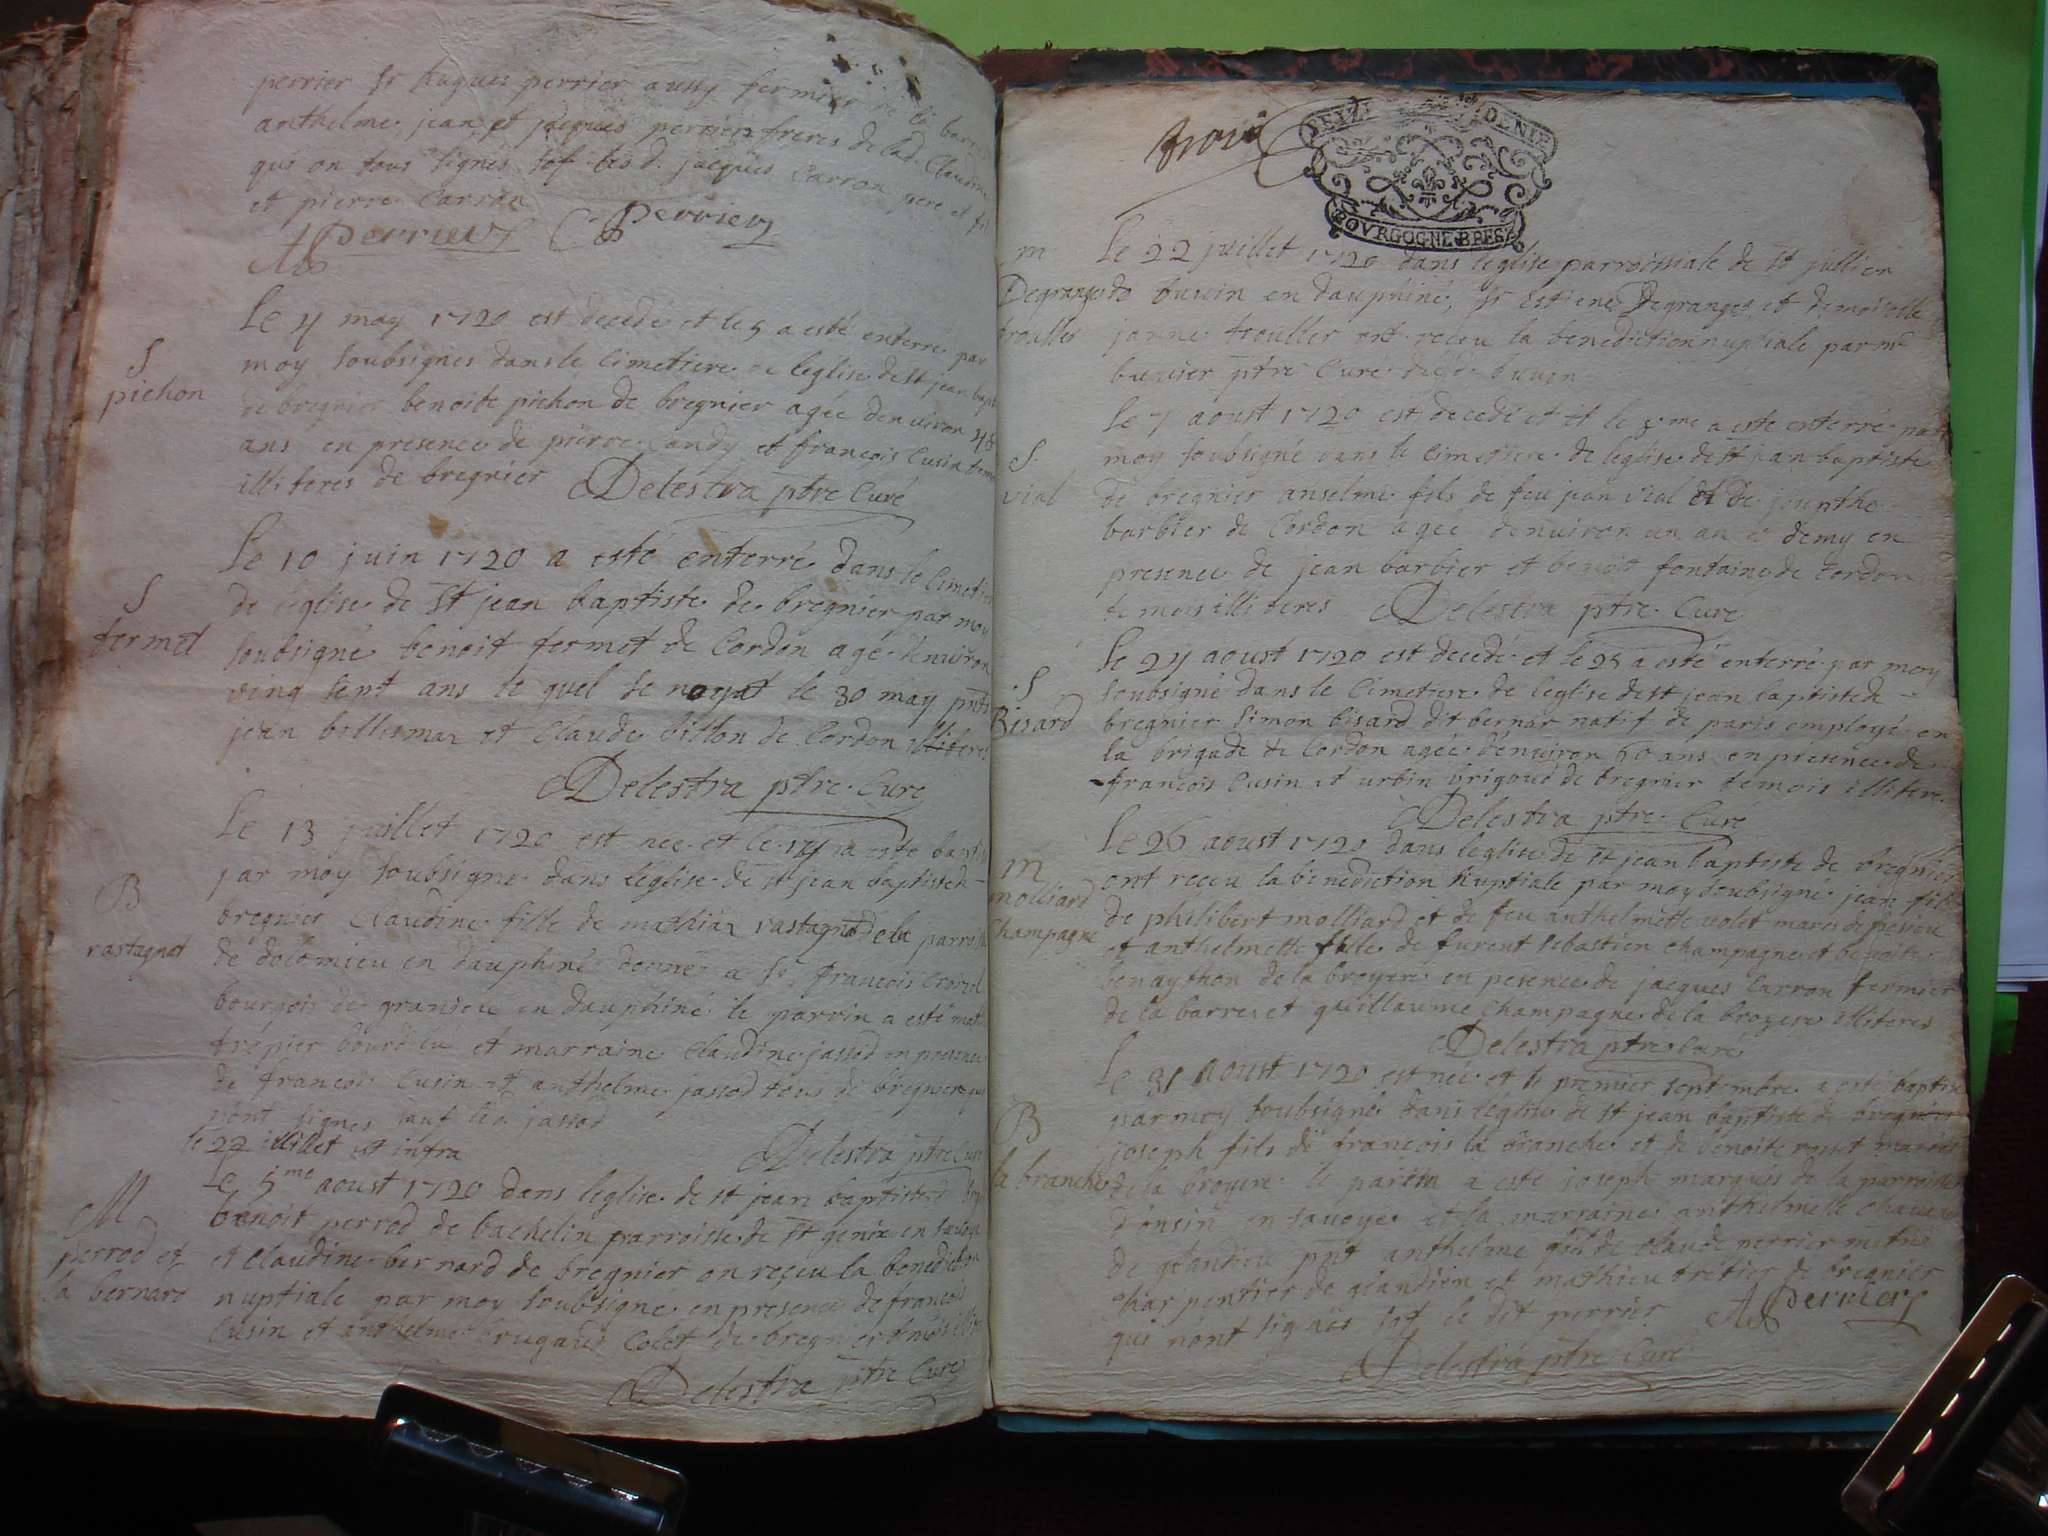 perrier Sr hugues perrier aussy fermier de la barre
anthelme, jean, et jacques perrier freres de lad. Claudine
qui on tous signés sof lesd. jacques Carron pere et fils
et pierre Carron
APerrier CPerrier
Le 4 may 1720 est decedé et le 5 a esté enterré par
S
pichon
moy soubsignés dans le Cimetiere de leglise de st jean bapt
de bregnier benoite pichon de bregnier agée denviron 48
ans en presence de pierre Candy et francois Cusin temoins
illiteres de bregnier Delestra ptre Curé
Le 10 juin 1720 a esté enterré dans le Cimetiere
S
fermet
de leglise de st jean baptiste de bregnier par moy
soubsigné benoit fermet de Cordon agé denviron
ving sept ans le quel se noyat le 30 may pnts
jean bellemar et Claude billon de Cordon illiteres
Delestra ptre Curé
Le 13 juillet 1720 est nee et le 14 a esté baptisé
B
rastagnot
par moy soubsigne dans leglise de st jean baptiste d
bregnier Claudine fille de mathiaz rastagnod de la parroisse
de dolomieu en dauphiné a Sr francois
bourgois de granieu en dauphiné le parrin a esté
trepier et marraine Claudine jassod en presence
de francois Cusin et anthelme jassod tous de bregnier qui
nont signes sauf
le 22 iuillet et infra
Delestra ptre Curé
Le 5me aoust 1720 dans leglise de st jean baptiste d
M
perrod et
la bernard
benoit perrod de bachelin parroisse de st genix en savoye
et Claudine bernard de bregnier on reçeu la benediction
nuptiale par moy soubsigne en presence de francois
Cusin et anthelme brugaud Colet de bregnier temois
Delestra ptre Curé
trois
SEIZE DENIE
BOVRGOGNE BRESSE
Le 22 juillet 1720 dans leglise parroissiale de st jullien
m
Degrange
troullier
de buvin en dauphiné, Sr Estiene Degranges et demoiselle
janne troullier ont receu la benediction nuptiale par mr
buvier ptre Curé dud. buvin
Le 7 aoust 1720 est decedé et le 8me a esté enterré par
S
vial
moy soubsigné dans le Cimetiere de leglise de st jean baptiste
de bregnier anselme fils de feu jean vial et de
barbier de Cordon agée denviron un an & demy en
presence de jean barbier et benoit fontaine de Cordon
temois illiteres Delestra ptre Curé
Le 24 aoust 1720 est decedé et le 25 a esté enterré par moy
S
Bisard
soubsigné dans le Cimetiere de leglise de st jean baptiste d
bregnier Simon bisard dit bernar natif de paris employé en
la brigade de Cordon agée denviron 60 ans en presence de
francois Cusin et urbin brigaud de bregnier temois illitere
Delestra ptre Curé
Le 26 aoust 1720 dans leglise de st jean baptiste de bregnier
m
molliard
Champagne
ont receu la benediction nuptiale par moy soubsigne jean fils
de philibert molliard et de feu anthelmette volet
et anthelmette fille de furent sebastien Champagne et benoite
benaython de la broyere en presence de jacques Carron fermier
de la barre et guillaume Champagne de la broyere illiteres
Delestra ptre Curé
Le 31 aoust 1720 est née et le premier septembre a esté baptisé
B
la branche
par moy soubsigné dans leglise de st jean baptiste de bregnier
joseph fils de francois la branche et de benoite
de la broyere le parein a esté joseph marquis de la parroisse
en savoye et la marraine anthelmette
de glandieu pnt anthelme de Claude perrier
charpentier de glandieu et mathieu de bregnier
qui nont signés sof le dit perrier. APerrier
Delestra ptre Curé